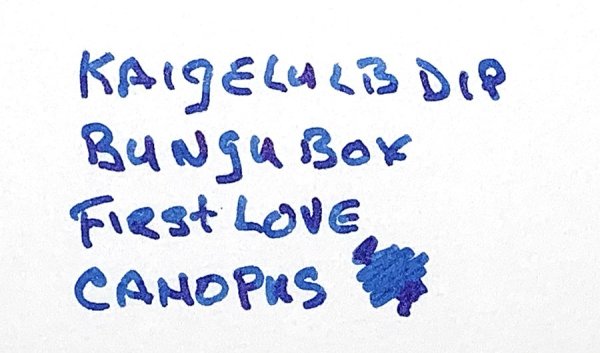 KAIGELULB DIP
BUNGUBOX
FIRST LOVE
CANOPUS